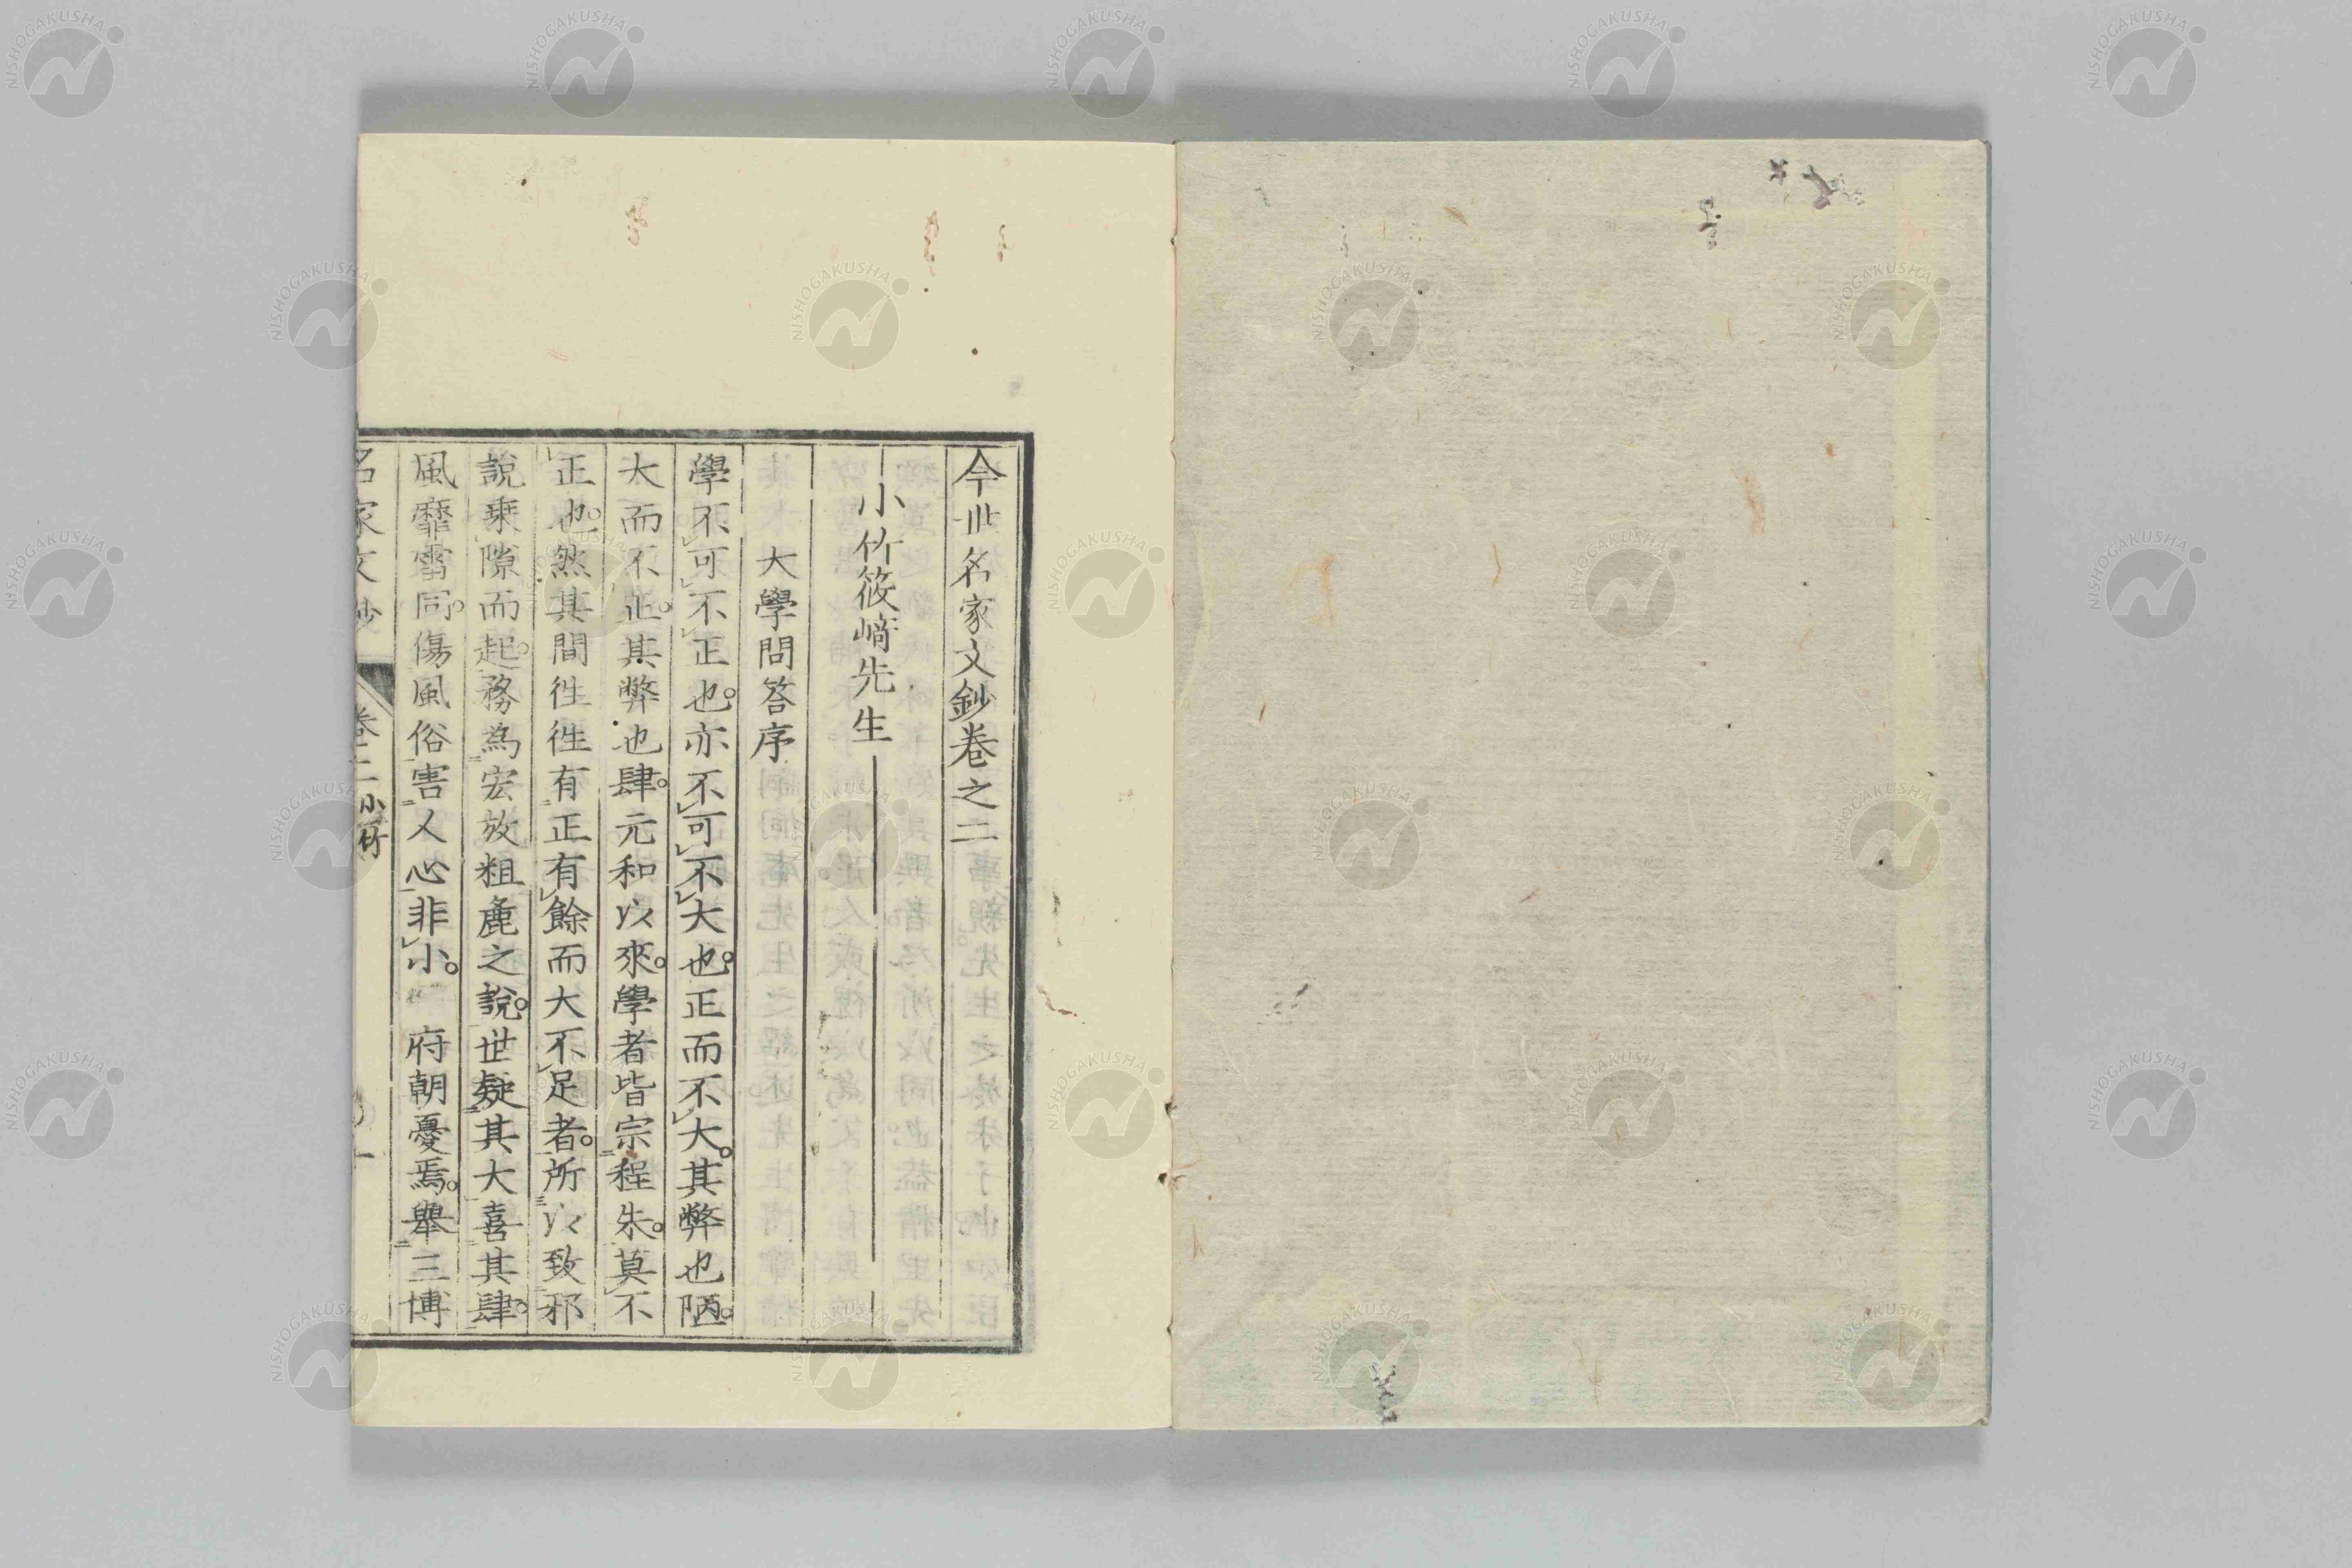 今世名家文鈔卷之二
小竹筱﨑先生
大學問答序
學不可不正也。亦不可不大也。正而不大。其弊也陋。
大而不正。其弊也肆。元和以來。學者皆宗程朱。莫不
正也。然其間徃徃有正有餘而大不足者。所以致邪
說乘隙而起。務為宏放粗麄之說。世疑其大喜其肆。
風靡雷同。傷風俗害人心非小。府朝憂焉。舉三博
名家文鈔 卷二 小竹 一
NISHOGAKUSHA